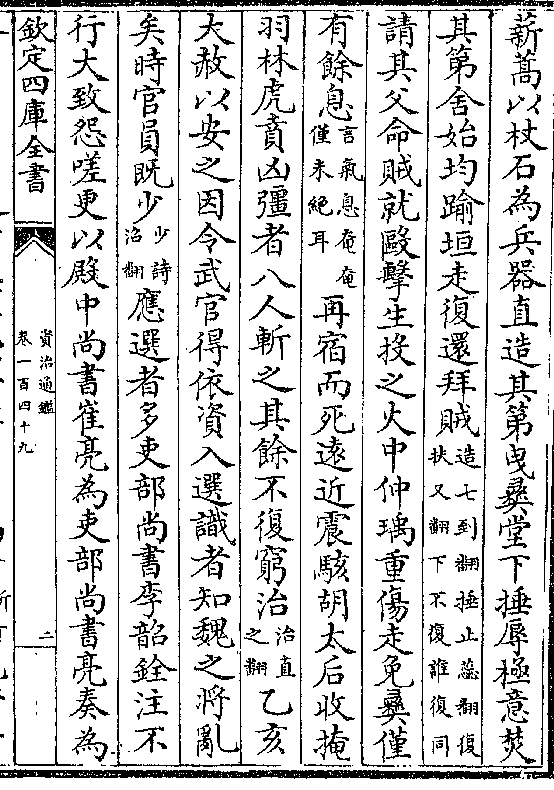 薪蒿以杖石為兵器直造其第曳彝堂下捶辱極意焚
其第舍始均踰垣走復還拜賊造七到翻捶止蘂翻復扶又翻下不復誰復同
請其父命賊就毆擊生投之火中仲瑀重傷走免彝僅
有餘息言氣息奄奄僅未絕耳再宿而死遠近震駭胡太后收掩
羽林虎賁凶彊者八人斬之其餘不復窮治治直之翻乙亥
大赦以安之因令武官得依資入選識者知魏之將亂
矣時官員既少少詩沼翻應選者多吏部尚書李韶銓注不
行大致怨嗟更以殿中尚書崔亮為吏部尚書亮奏為
欽定四庫全書
資治通鑑
卷一百四十九
二